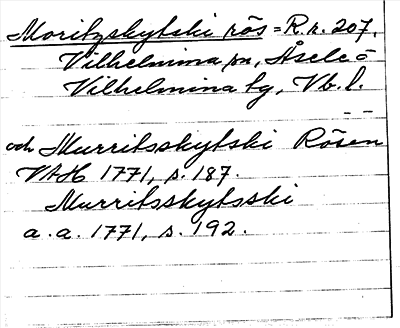 Moritzskytski rös = R.r. 207,
Vilhelmina sn, Åsele ö
Vilhelmina tg, Vb. l.
och Murritsskytski Rösen
VAH 1771, s. 187.
Murritsskytsski
a. a. 1771, s. 192.